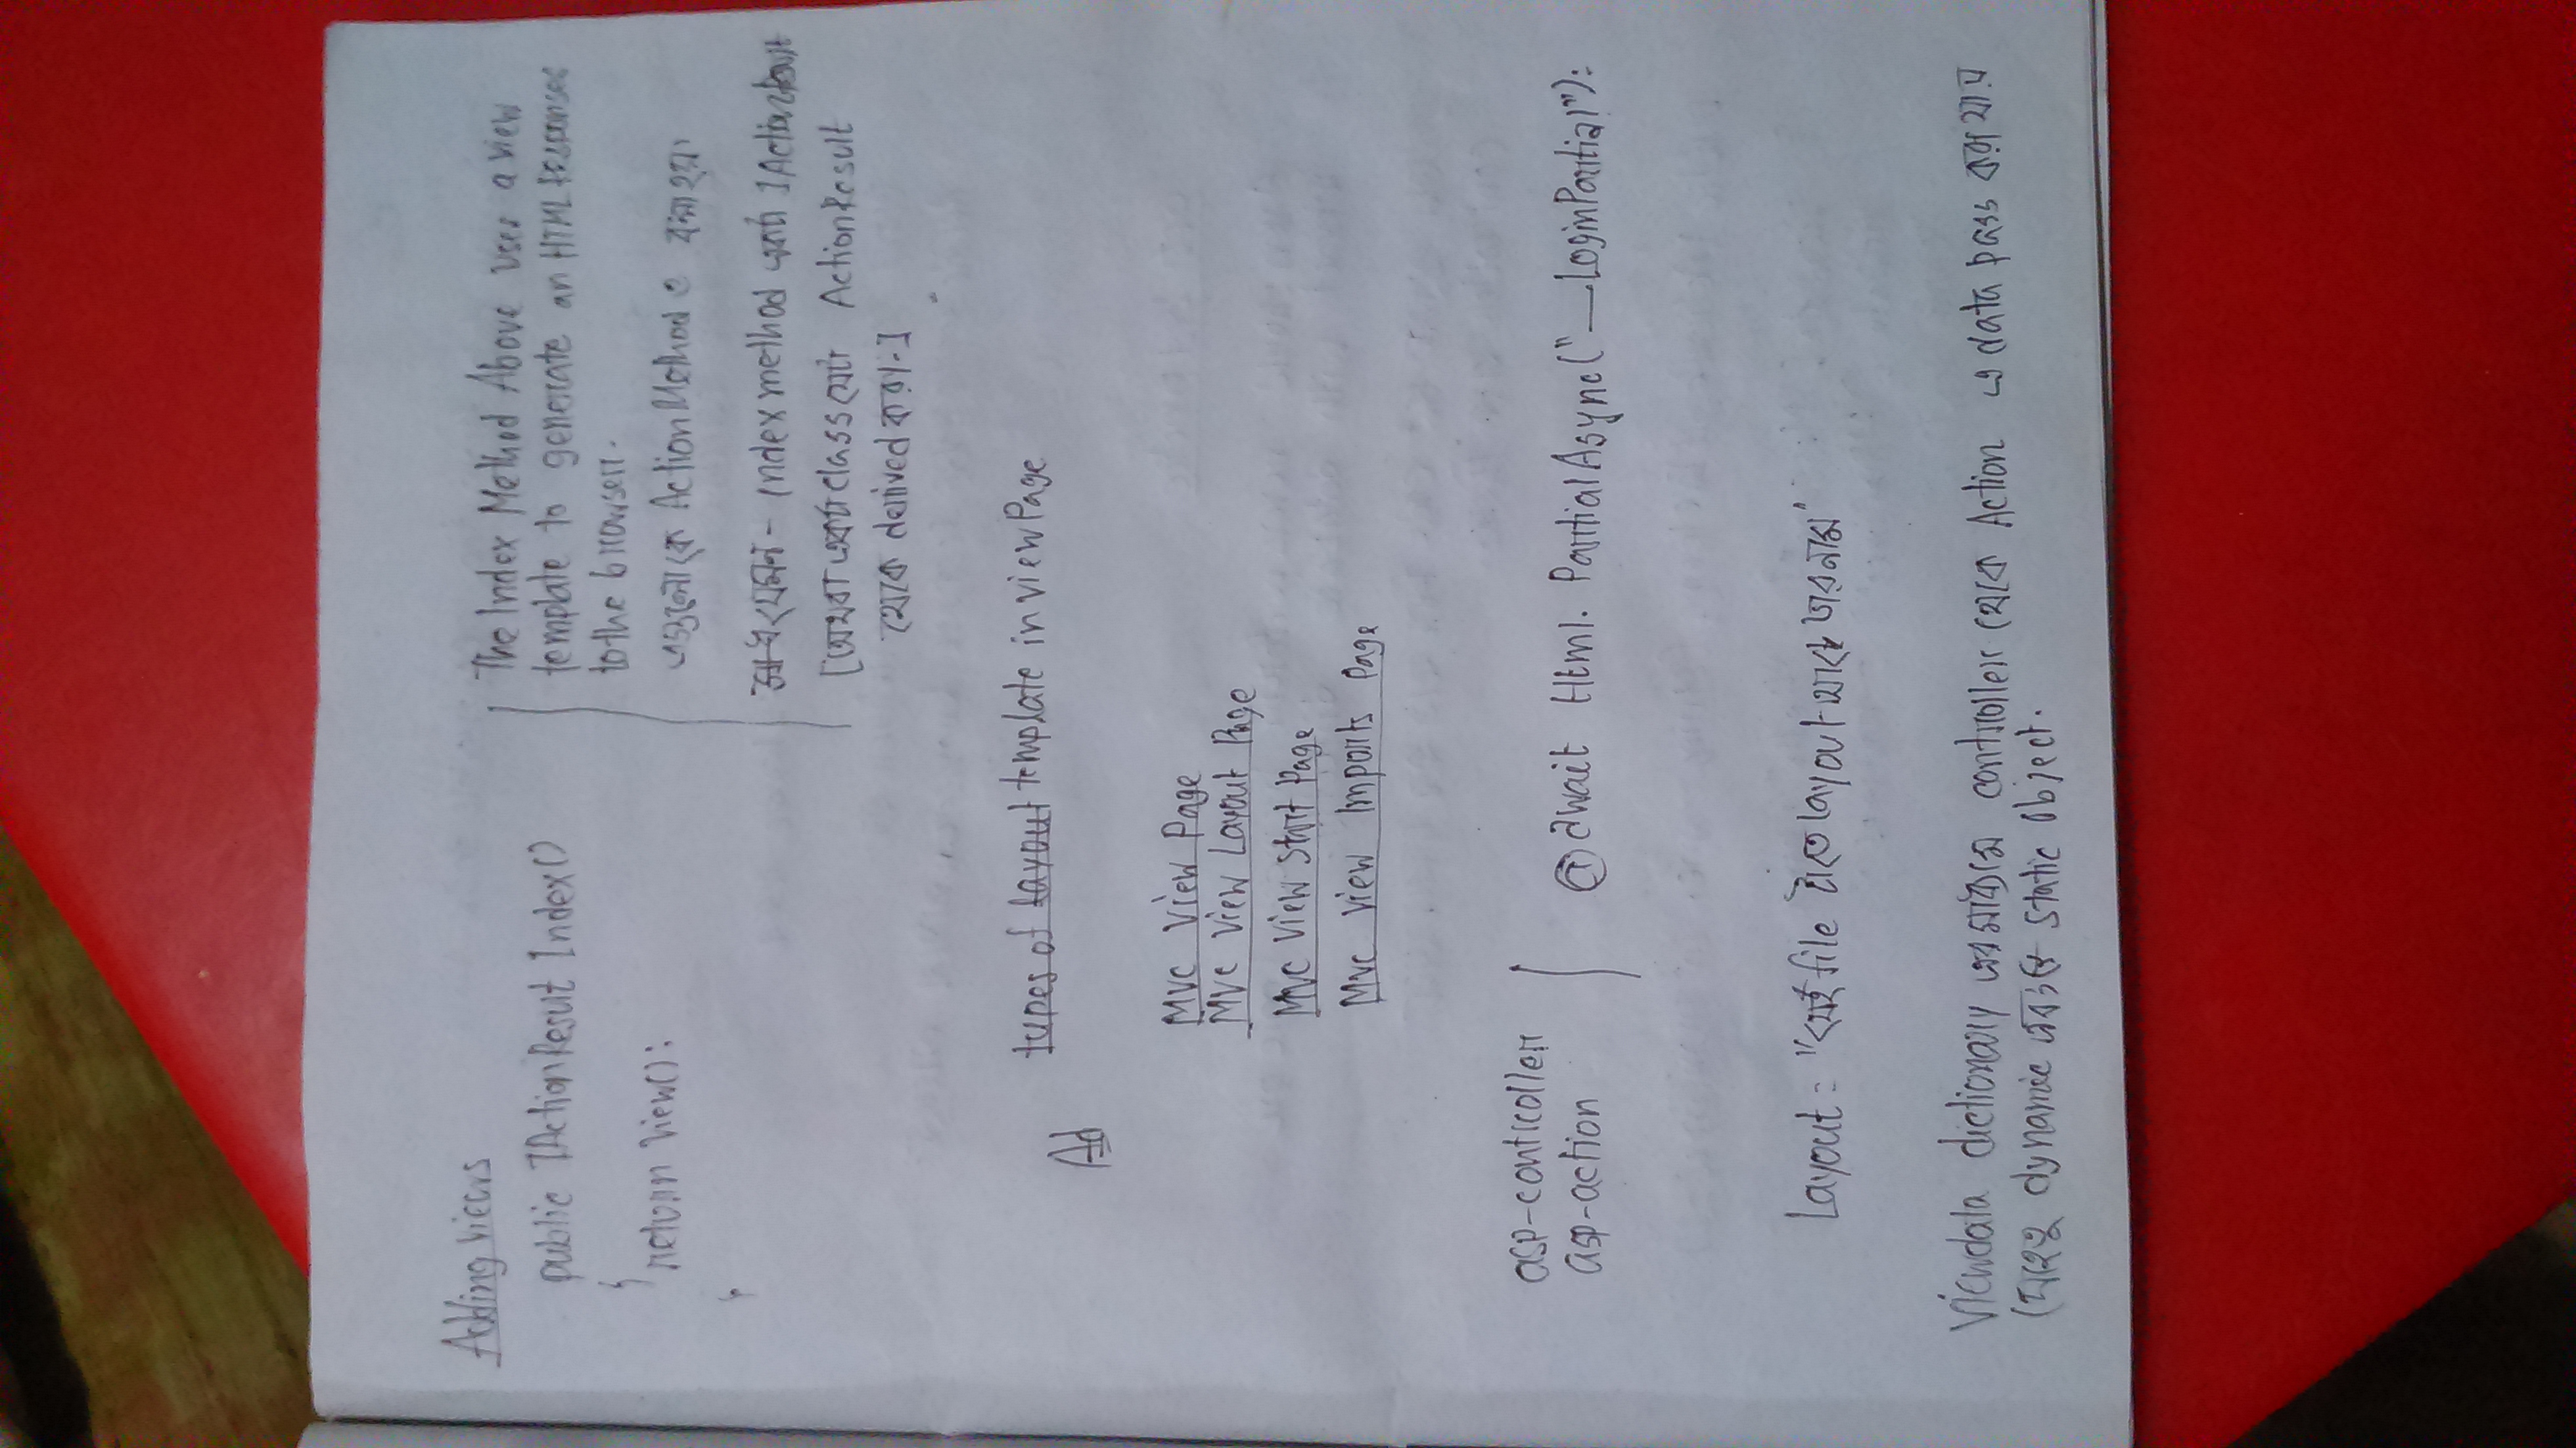 Adding views
public IActionResult Index()
{
return View();
}
The Index Method Above uses a view
template to generate an HTML Responses
to the browser.
এগুলোকে Action Method ও বলা হয়।
যেমন - Index method একটা IActionResult
[অথবা একটা class যেটা ActionResult
থেকে derived করা।]
types of layout template in view Page
Ad
MVC View Page
MVC View Layout Page
MVC View Start Page
MVC View Imports Page
asp-controller
asp-action
@await Html.PartialAsync("_LoginPartial");
Layout = "যেই file টাতে layout আছে তার নাম"
Viewdata dictionary এর মাধ্যমে controller থেকে Action এ data pass করা যায়
যেহেতু dynamic এবং static object.